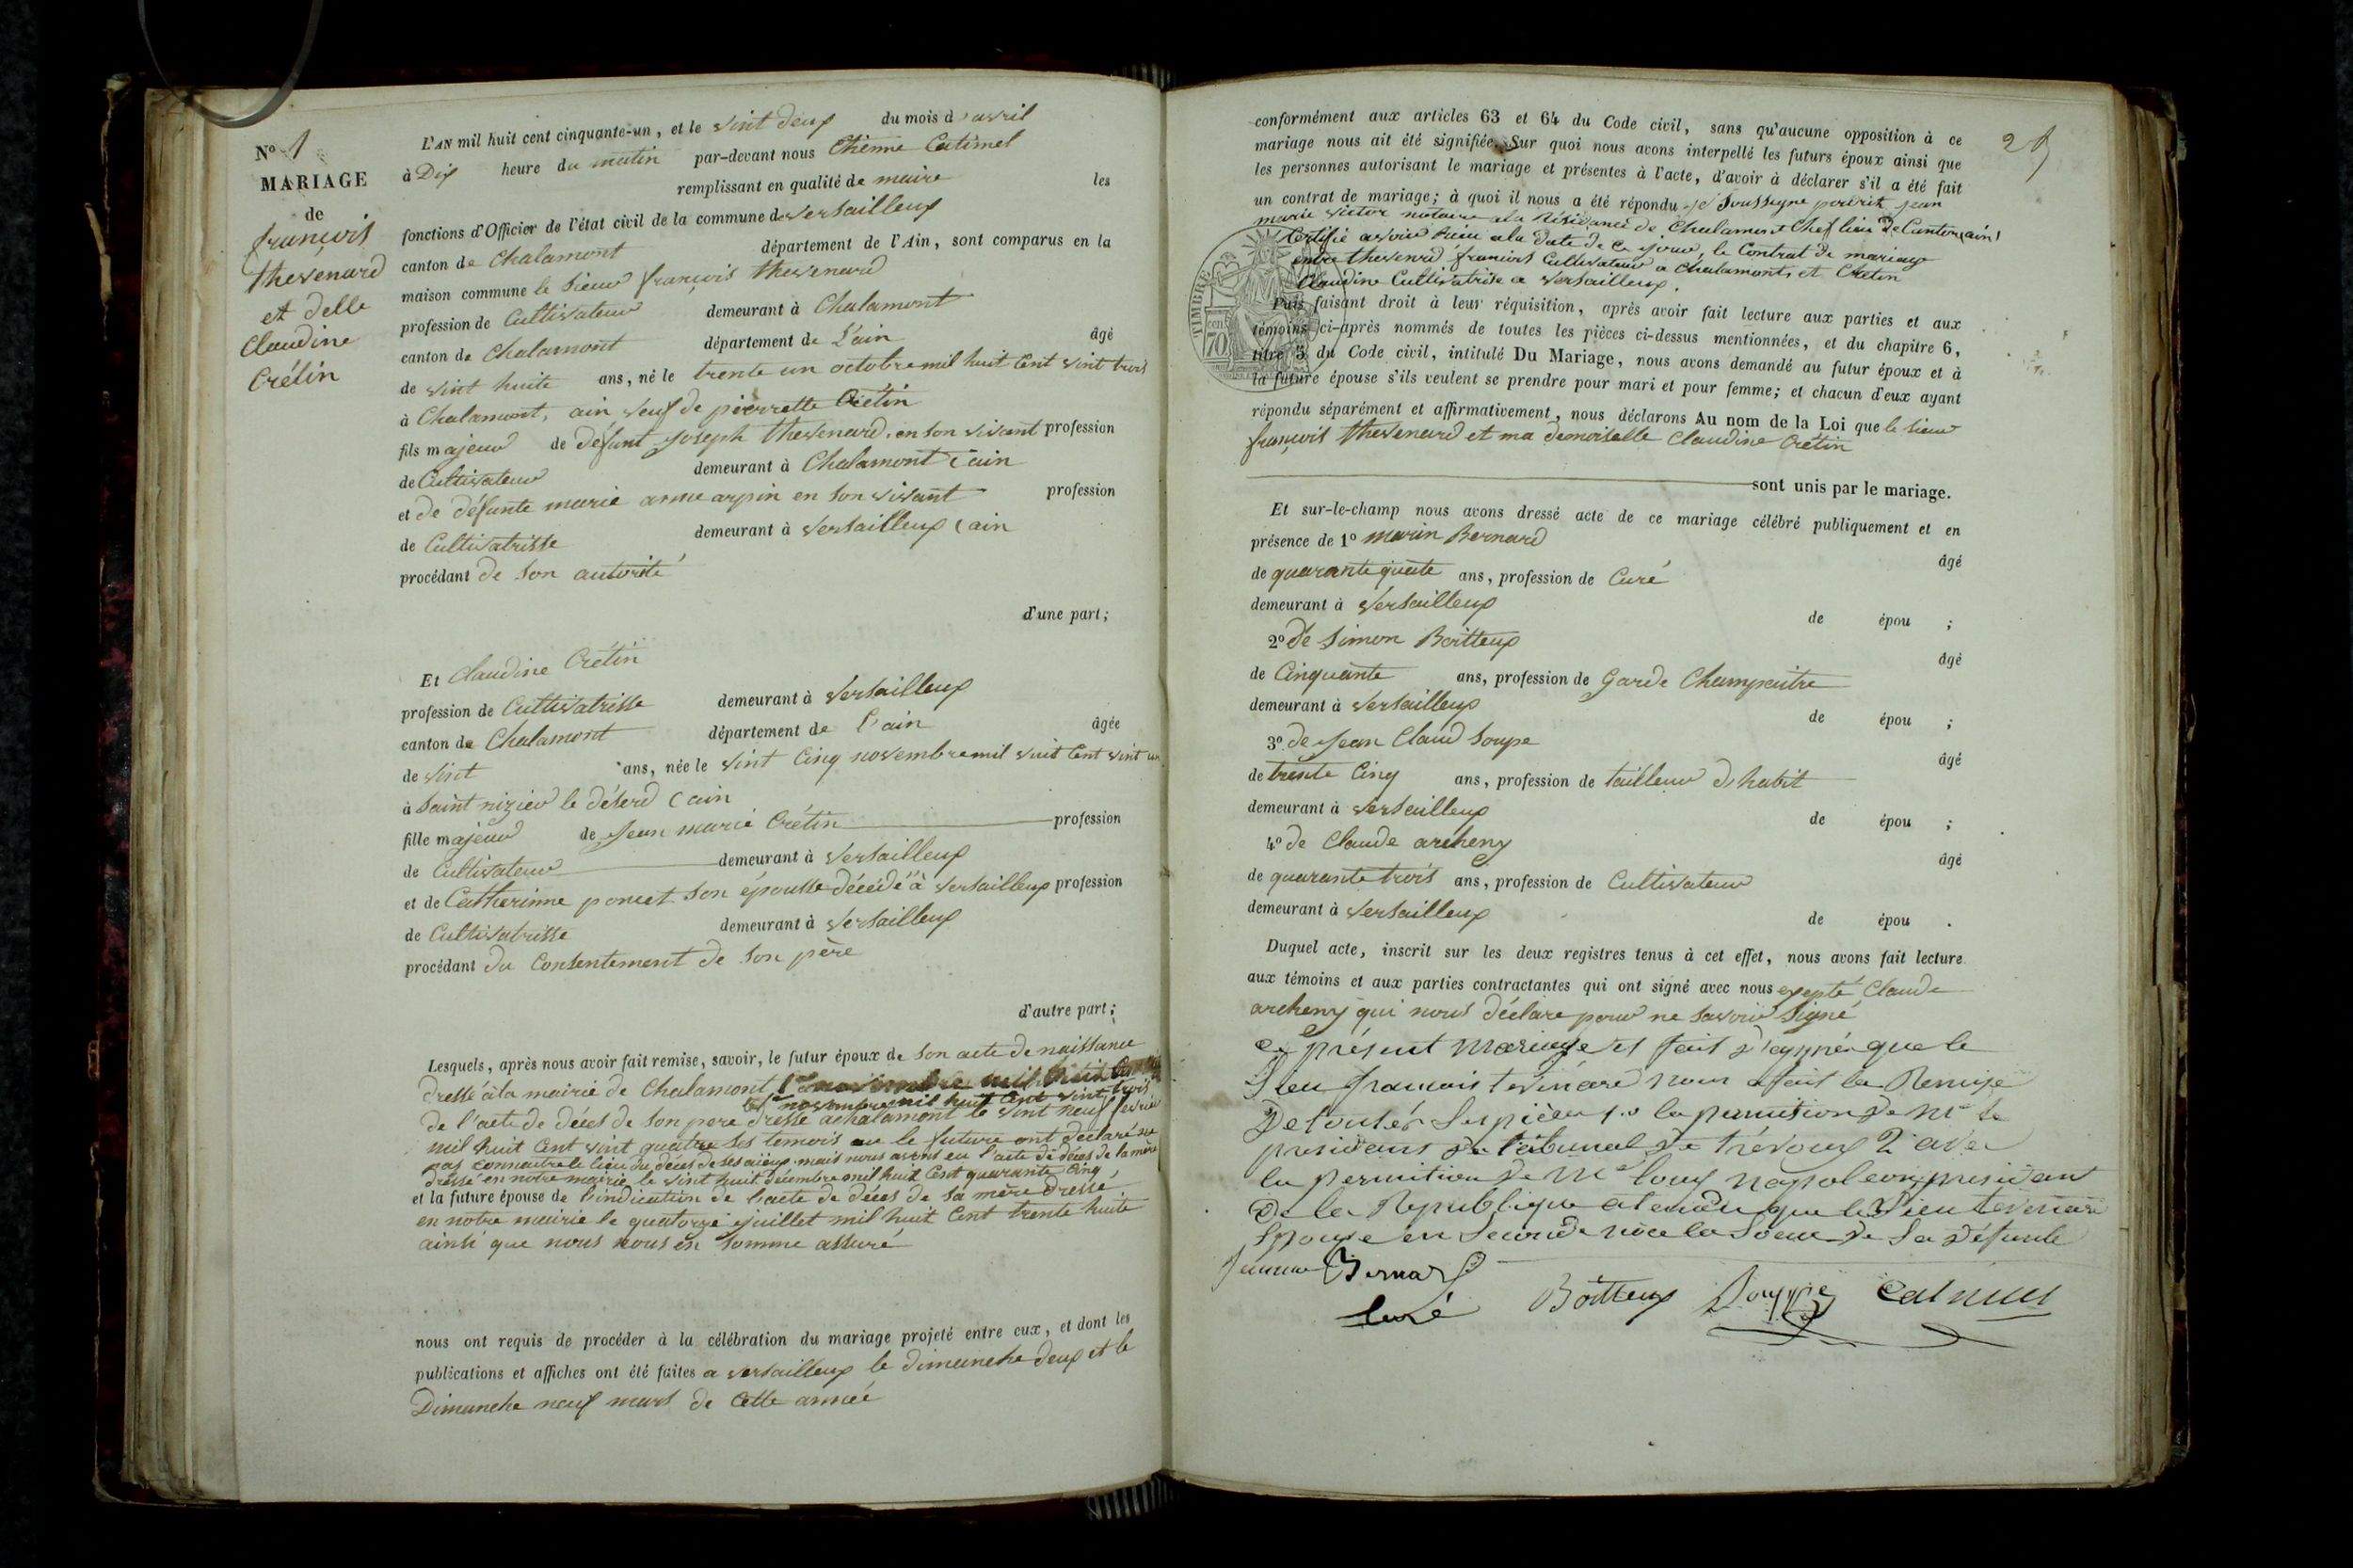 No 1
MARIAGE
de
françois
thevenard
et delle
Claudine
Crétin
L'AN mil huit cent cinquante-un, et le vint deux du mois d'avril
à Dix heure du matin par-devant nous Etienne Catimel
remplissant en qualité de maire les
fonctions d'Officier de l'état civil de la commune de Versailleux
canton de Chalamont département de l'Ain, sont comparus en la
maison commune le sieur françois thevenard
profession de Cultivateur demeurant à Chalamont
canton de Chalamont département de L'ain âgé
de vint huite ans, né le trente un octobre mil huit Cent vint trois
à Chalamont, ain veuf de pierrette Crétin
fils majeur de défunt joseph thevenard, en son vivant profession
de Cultivateur demeurant à Chalamont (ain
et de défunte marie anne arpin en son vivant profession
de Cultivatrisse demeurant à Versailleux (ain
procédant de son autorité
d'une part;
Et Claudine Crétin
profession de Cultivatrisse demeurant à Versailleux
canton de Chalamont département de l'ain âgée
de vint ans, née le vint Cinq novembre mil vuit Cent vint un
à Saint nizier le déserd (ain
fille majeur de Jean marie Crétin profession
de Cultivateur demeurant à Versailleux
et de Catherinne poncet son épousse décédé à Versailleux profession
de Cultivatrisse demeurant à Versailleux
procédant du Consentement de son père
d'autre part;
Lesquels, après nous avoir fait remise, savoir, le futur époux de son acte de naissance
dressé à la mairie de Chalamont
novembre mil huit Cent vint trois
de l'acte de décès de son pere dressé a chalamont le vint neuf fevrier
mil huit Cent vint quatre ses temois le future ont déclaré ne
pas connaitre le lieu du décès de ses aïeux mais nous avons eu l'acte de décès de la mère
dressé en notre mairie le vint huit décembre mil huit Cent quarante Cinq,
et la future épouse de l'indication de l'acte de décès de sa mère dressé
en notre mairie le quatorze juillet mil huit Cent trente huite
ainsi que nous nous en somme assuré
nous ont requis de procéder à la célébration du mariage projeté entre eux, et dont les
publications et affiches ont été faites a Versailleux le dimanche deux et le
Dimanche neuf mars de Cette année
conformément aux articles 63 et 64 du Code civil, sans qu'aucune opposition à ce
mariage nous ait été signifiée. Sur quoi nous avons interpellé les futurs époux ainsi que
les personnes autorisant le mariage et présentes à l'acte, d'avoir à déclarer s'il a été fait
un contrat de mariage; à quoi il nous a été répondu je soussigne jean
marie victor notaire a la Résidance de Chalamont Chef lieu de Canton (ain)
Certifie avoir a la date de Ce jour, le Contrat de mariage
entre thevenard françois Cultivateur a Chalamont, et Crétin
Claudine Cultivatrise a Versailleux.
TIMBRE
cen
70
Puis faisant droit à leur réquisition, après avoir fait lecture aux parties et aux
témoins ci-après nommés de toutes les pièces ci-dessus mentionnées, et du chapitre 6,
titre 5 du Code civil, intitulé Du Mariage, nous avons demandé au futur époux et à
la future épouse s'ils veulent se prendre pour mari et pour femme; et chacun d'eux ayant
répondu séparément et affirmativement, nous déclarons Au nom de la Loi que le sieur
françois thevenard et ma demoiselle Claudine Crétin
sont unis par le mariage.
Et sur-le-champ nous avons dressé acte de ce mariage célébré publiquement et en
présence de 1o marin Bernard
âgé
de quarante quate ans, profession de Curé
demeurant à Versailleux
de épou ;
2o de Simon Boitteux
âgé
de Cinquante ans, profession de Garde Champaitre
demeurant à Versailleux
de épou ;
3o de Jean Claud Soupe
âgé
de trente Cinq ans, profession de tailleur d'habit
demeurant à Versailleux
de épou ;
4o de Claude archeny
âgé
de quarante trois ans, profession de Cultivateur
demeurant à Versailleux
de épou .
Duquel acte, inscrit sur les deux registres tenus à cet effet, nous avons fait lecture
aux témoins et aux parties contractantes qui ont signé avec nous exepté Claude
archeny qui nous déclare pour ne savoir signé
Ce présent mariage et fait d'apprés que le
Sieu francois tevenard nous a fait la Remise
De toutes les pièces 1o la permition de Mr le
presidant du tribunal de trévoux 2 avec
la Permition de Mr louy napoleon presidant
de la Republique atendu que le Sieu tevenard
Epouse en Seconde noce la Soeur de Sa défunte
femme Bernard
Curé Boitteux Souppe Catimel